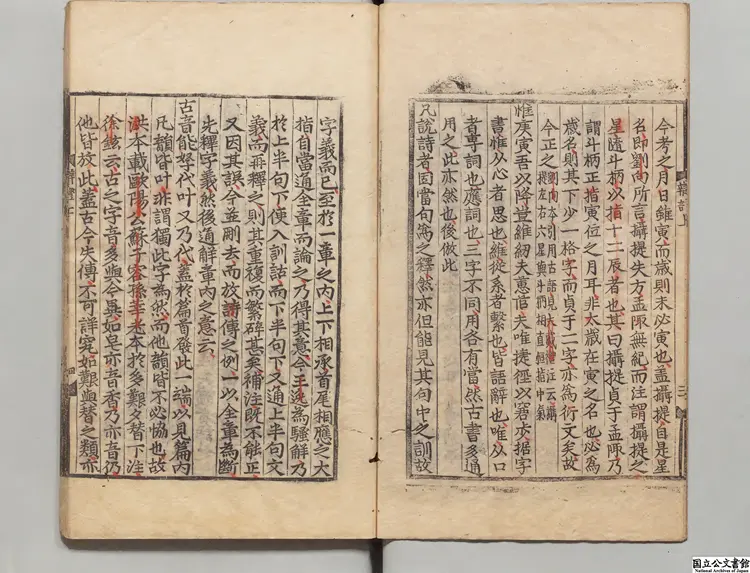 今考之月日雖寅而歲則未必寅也蓋攝提自是星
名即劉向所言攝提失方孟陬無紀而注謂攝提之
星隨斗柄以指十二辰者也其曰攝提貞于孟陬乃
謂斗柄正指寅位之月耳非太歲在寅之名也必為
歲名則其下少一格字而貞于二字亦為衍文矣故
今正之劉向本引用古語見大戴禮注云攝
提左右六星與斗柄相直恒指中氣
惟庚寅吾以降豈維紉夫蕙茝夫唯捷徑以窘步據字
書惟從心者思也維從糸者繫也皆語辭也唯從口
者專詞也應詞也三字不同用各有當然古書多通
用之此亦然也後倣此
凡說詩者固當句為之釋然亦但能見其句中之訓故
字義而已至於一章之內上下相承首尾相應之大
指自當通全章而論之乃得其意今王逸為騷解乃
於上半句下便入訓詁而下半句下又通上半句文
義而再釋之則其重復而繁碎甚矣補注既不能正
又因其誤今並刪去而放詩傳之例一以全章為斷
先釋字義然後通解章內之意云
古音能孥代叶又乃代蓋於篇首發此一端以見篇內
凡韻皆叶非謂獨此字為然而他韻皆不必協也故
洪本載歐陽公蘇子容孫莘老本於多艱夕替下注
徐鉉云古之字音多與今異如皂亦音香乃亦音仍
他皆放此蓋古今失傳不可詳究如艱與替之類亦
国立公文書館
National Archives of Japan